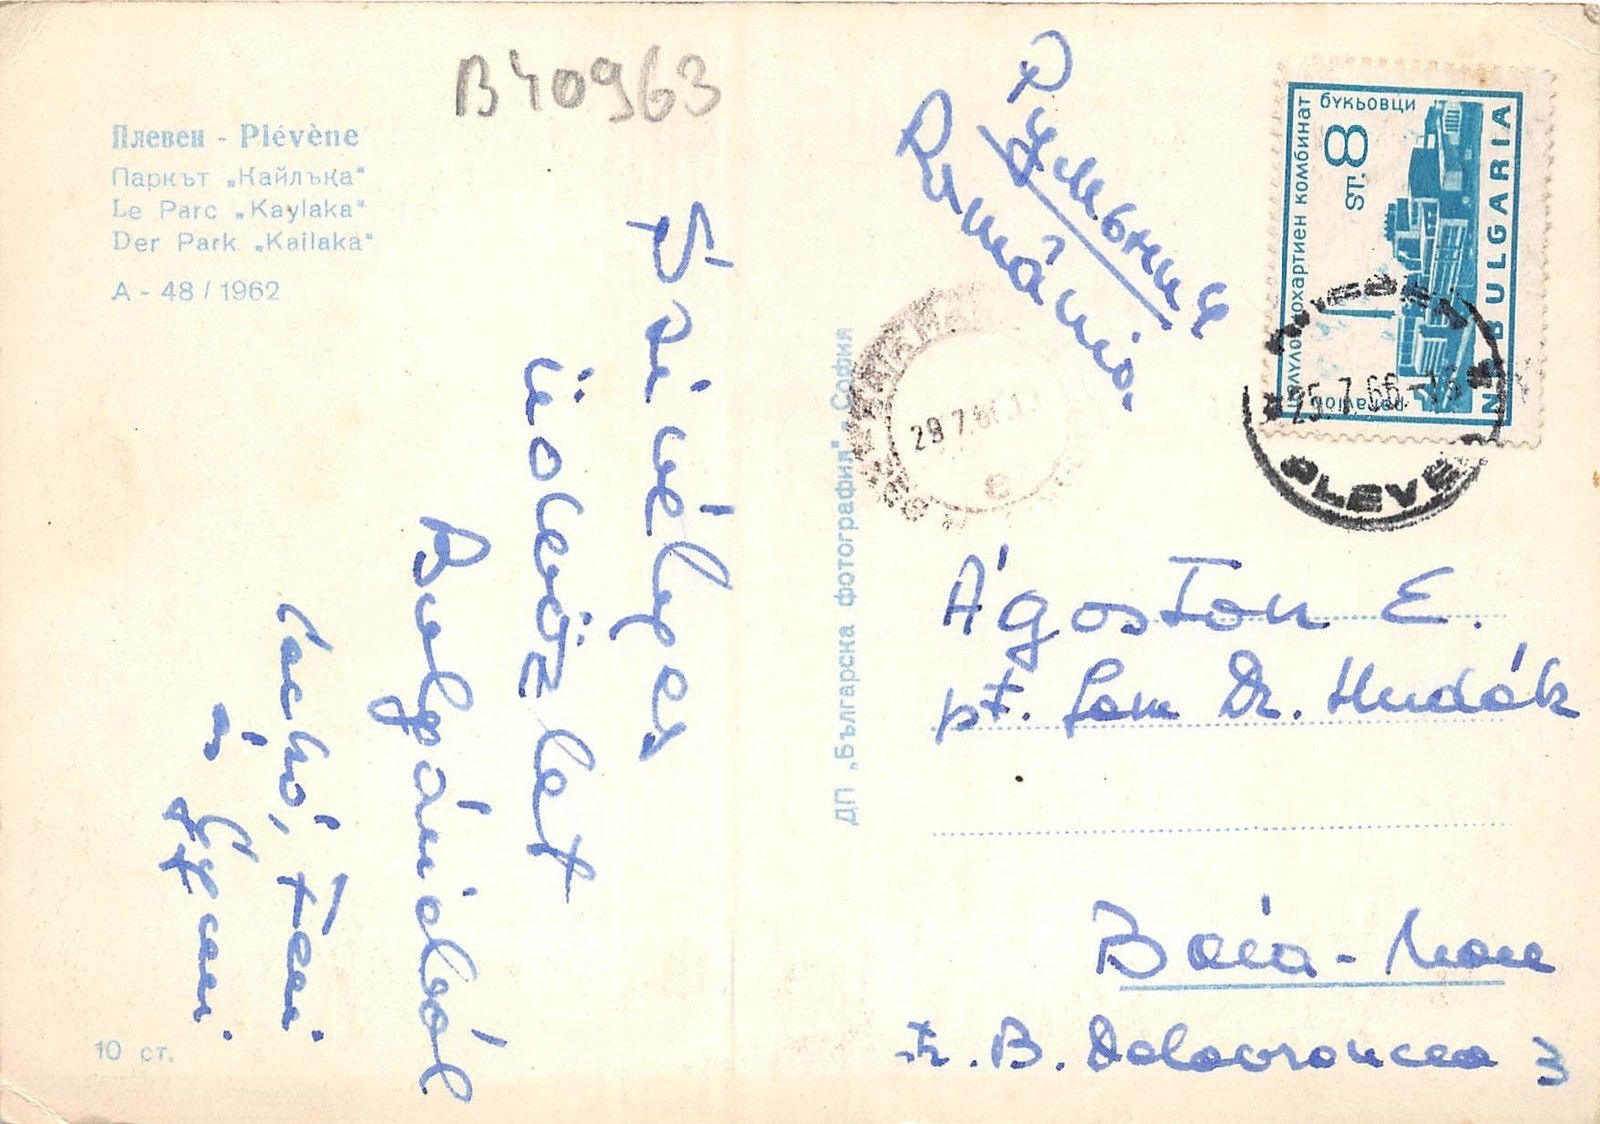 B40963
Плевен - Plévène
Паркът „Кайлъка"
Le Parc „Kaylaka"
Der Park „Kailaka"
A - 48 / 1962
Szívélyes
üdvözlet
Bulgáriából
10 ст.
ДП „Българска фотография" - София
Румъния
România
целулозохартиен комбинат
букьовци
ST. 8
NR BULGARIA
ПЛЕВЕН
25.7.66
PLEVEN
Ágoston E.
pt. fam Dr. Hudák
Baia-Mare
str. B. Delavrancea 3